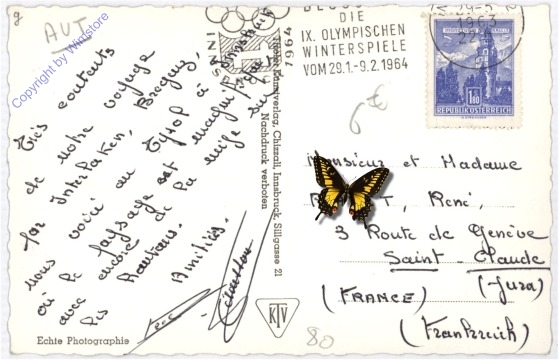 g
AUT
Copyright by Winstore
Très contents
de notre voyage
par Interlaken, Bregenz
nous voici au Tyrol à Innsbruck
où le paysage est magnifique
avec encore de la neige sur
les hauteurs.
Amitiés.
Echte Photographie
Chizzali, Innsbruck, Sillgasse 21
Nachdruck verboten
KTV
DIE
IX. OLYMPISCHEN
WINTERSPIELE
VOM 29.1.-9.2.1964
1964
1963
1.80
REPUBLIK ÖSTERREICH
6€
Monsieur et Madame
René,
3 Route de Genève
Saint-Claude
(FRANCE) (Jura)
(Frankreich)
80